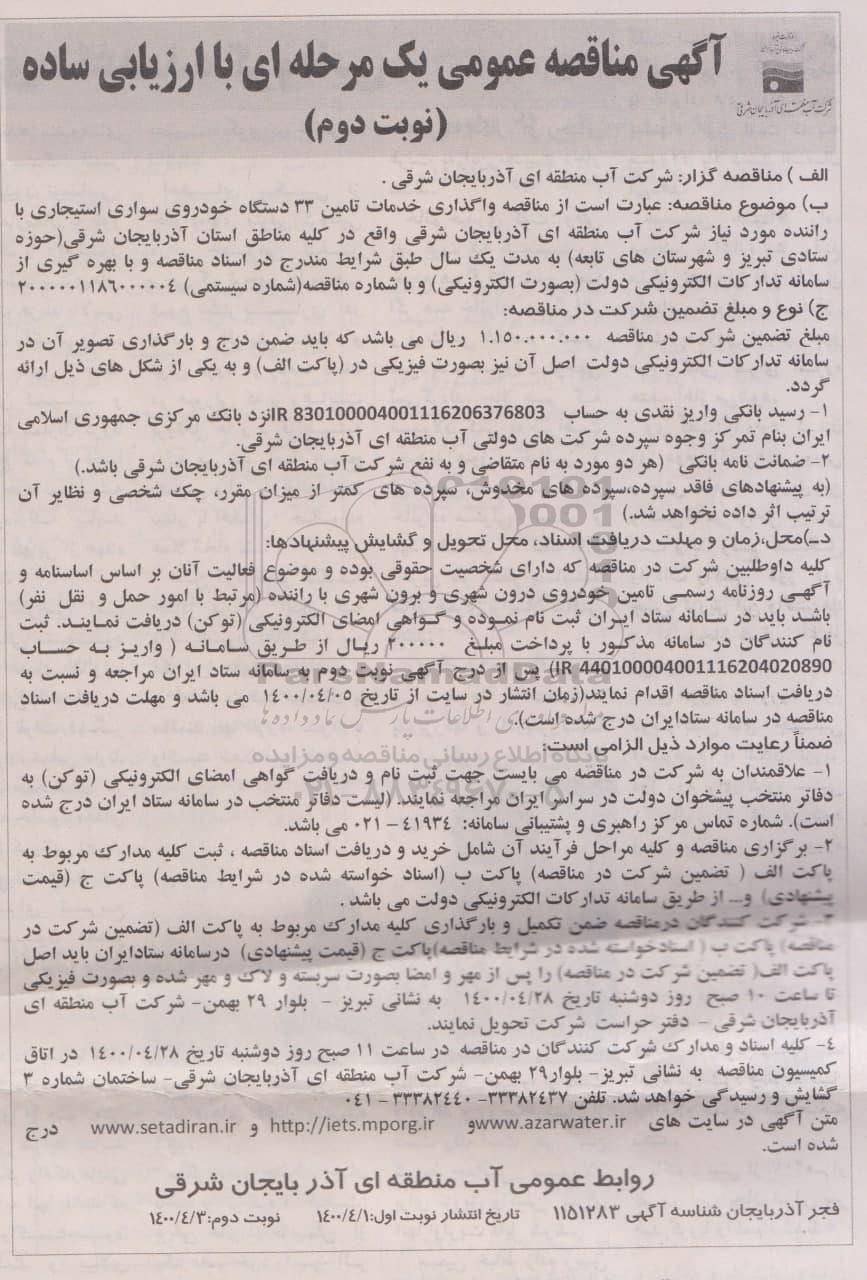 آگهی مناقصه عمومی یک مرحله ای با ارزیابی ساده
(نوبت دوم)
شرکت آب منطقه ای آذربایجان شرقی
الف ) مناقصه گزار: شرکت آب منطقه ای آذربایجان شرقی .
ب) موضوع مناقصه: عبارت است از مناقصه واگذاری خدمات تامین ۳۳ دستگاه خودروی سواری استیجاری با
راننده مورد نیاز شرکت آب منطقه ای آذربایجان شرقی واقع در کلیه مناطق استان آذربایجان شرقی(حوزه
ستادی تبریز و شهرستان های تابعه) به مدت یک سال طبق شرایط مندرج در اسناد مناقصه و با بهره گیری از
سامانه تدارکات الکترونیکی دولت (بصورت الکترونیکی) و با شماره مناقصه(شماره سیستمی) ۲۰۰۰۰۰۱۱۸۶۰۰۰۰۰۴
ج) نوع و مبلغ تضمین شرکت در مناقصه:
مبلغ تضمین شرکت در مناقصه ۱.۱۵۰.۰۰۰.۰۰۰ ریال می باشد که باید ضمن درج و بارگذاری تصویر آن در
سامانه تدارکات الکترونیکی دولت اصل آن نیز بصورت فیزیکی در (پاکت الف) و به یکی از شکل های ذیل ارائه
گردد.
۱- رسید بانکی واریز نقدی به حساب IR 830100004001116206376803نزد بانک مرکزی جمهوری اسلامی
ایران بنام تمرکز وجوه سپرده شرکت های دولتی آب منطقه ای آذربایجان شرقی.
۲- ضمانت نامه بانکی (هر دو مورد به نام متقاضی و به نفع شرکت آب منطقه ای آذربایجان شرقی باشد.)
(به پیشنهادهای فاقد سپرده،سپرده های مخدوش، سپرده های کمتر از میزان مقرر، چک شخصی و نظایر آن
ترتیب اثر داده نخواهد شد.)
د-)محل،زمان و مهلت دریافت اسناد، محل تحویل و گشایش پیشنهادها:
کلیه داوطلبین شرکت در مناقصه که دارای شخصیت حقوقی بوده و موضوع فعالیت آنان بر اساس اساسنامه و
آگهی روزنامه رسمی تامین خودروی درون شهری و برون شهری با راننده (مرتبط با امور حمل و نقل نفر)
باشد باید در سامانه ستاد ایران ثبت نام نموده و گواهی امضای الکترونیکی (توکن) دریافت نمایند. ثبت
نام کنندگان در سامانه مذکور با پرداخت مبلغ ۲۰۰۰۰۰ ریال از طریق سامانه ( واریز به حساب
IR 440100004001116204020890) پس از درج آگهی نوبت دوم به سامانه ستاد ایران مراجعه و نسبت به
دریافت اسناد مناقصه اقدام نمایند(زمان انتشار در سایت از تاریخ ۱۴۰۰/۰۴/۰۵ می باشد و مهلت دریافت اسناد
مناقصه در سامانه ستادایران درج شده است).
ضمناً رعایت موارد ذیل الزامی است:
۱- علاقمندان به شرکت در مناقصه می بایست جهت ثبت نام و دریافت گواهی امضای الکترونیکی (توکن) به
دفاتر منتخب پیشخوان دولت در سراسر ایران مراجعه نمایند. (لیست دفاتر منتخب در سامانه ستاد ایران درج شده
است). شماره تماس مرکز راهبری و پشتیبانی سامانه: ۴۱۹۳۴ - ۰۲۱ می باشد.
۲- برگزاری مناقصه و کلیه مراحل فرآیند آن شامل خرید و دریافت اسناد مناقصه ، ثبت کلیه مدارک مربوط به
پاکت الف ( تضمین شرکت در مناقصه) پاکت ب (اسناد خواسته شده در شرایط مناقصه) پاکت ج (قیمت
پیشنهادی) و... از طریق سامانه تدارکات الکترونیکی دولت می باشد .
۳- شرکت کنندگان درمناقصه ضمن تکمیل و بارگذاری کلیه مدارک مربوط به پاکت الف (تضمین شرکت در
مناقصه) پاکت ب ( اسنادخواسته شده در شرایط مناقصه)پاکت ج (قیمت پیشنهادی) درسامانه ستادایران باید اصل
پاکت الف( تضمین شرکت در مناقصه) را پس از مهر و امضا بصورت سربسته و لاک و مهر شده و بصورت فیزیکی
تا ساعت ۱۰ صبح روز دوشنبه تاریخ ۱۴۰۰/۰۴/۲۸ به نشانی تبریز - بلوار ۲۹ بهمن- شرکت آب منطقه ای
آذربایجان شرقی - دفتر حراست شرکت تحویل نمایند.
۴- کلیه اسناد و مدارک شرکت کنندگان در مناقصه در ساعت ۱۱ صبح روز دوشنبه تاریخ ۱۴۰۰/۰۴/۲۸ در اتاق
کمیسیون مناقصه به نشانی تبریز- بلوار۲۹ بهمن- شرکت آب منطقه ای آذربایجان شرقی- ساختمان شماره ۳
گشایش و رسیدگی خواهد شد. تلفن ۳۳۳۸۲۴۳۷- ۳۳۳۸۲۴۴۰ - ۰۴۱
متن آگهی در سایت های www.azarwater.irو http://iets.mporg.ir و www.setadiran.ir درج
شده است.
روابط عمومی آب منطقه ای آذر بایجان شرقی
فجر آذربایجان شناسه آگهی ۱۱۵۱۲۸۳ تاریخ انتشار نوبت اول:۱۴۰۰/۴/۱ نوبت دوم:۱۴۰۰/۴/۳
ParsNamadData
پایگاه اطلاع رسانی مناقصه و مزایده